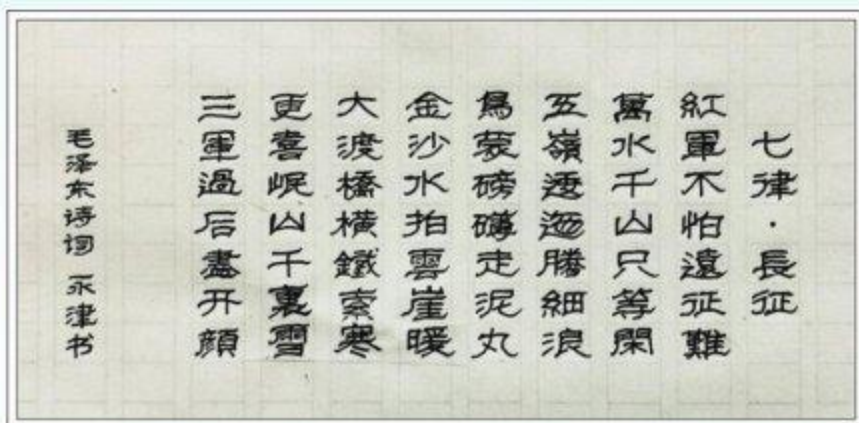 七律·長征
紅軍不怕遠征難
萬水千山只等閑
五嶺逶迤騰細浪
烏蒙磅礴走泥丸
金沙水拍雲崖暖
大渡橋橫鐵索寒
更喜岷山千裏雪
三軍過后盡开顏
毛泽东诗词 永津书